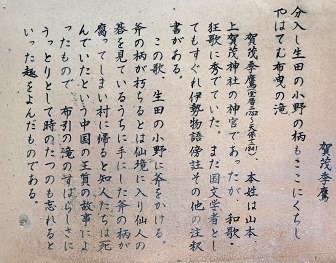 賀茂季鷹
分入し生田の小野の柄もこゝにくちし
やはてむ布曳の滝
賀茂季鷹 本姓は山本、
上賀茂神社の神官であったが、和歌・
狂歌に秀でていた。また国文学者とし
てもすぐれ伊勢物語傍註その他の注釈
書がある。
この歌、生田の小野に斧をかける。
斧の柄が朽ちるとは仙境に入り仙人の
碁を見ているうちに手にした斧の柄が
腐ってしまい村に帰ると知人たちは死
んでいたという中国の王質の故事によ
ったもので、布引の滝のすばらしさに
うっとりとして時のたつのも忘れると
いった趣をよんだものである。